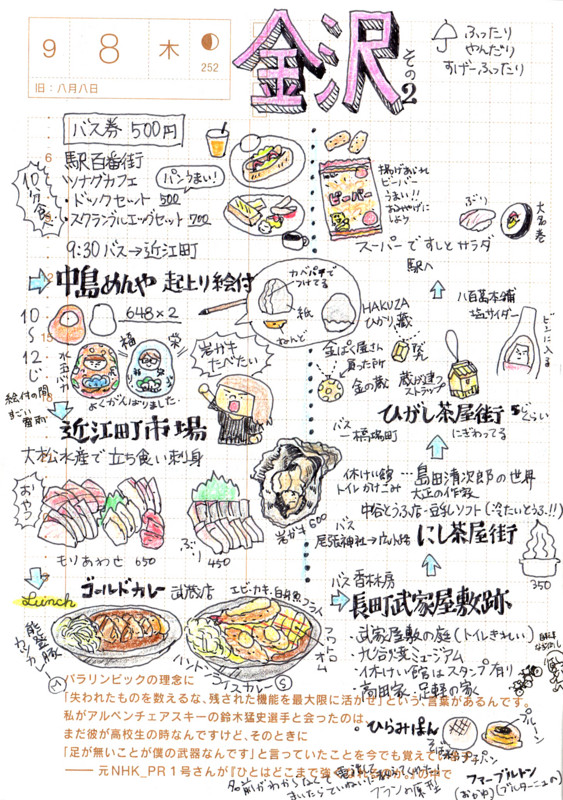 9 8 木
252
旧:八月八日
金沢
その2
ふったり
やんだり
すげーふったり
バス券 500円
10分で食べ
駅百番街
ツナグカフェ
・ドックセット 500
・スクランブルエッグセット 700
パンうまい!
9:30 バス→近江町
揚げあられ
ビーバー
うまい!!
おみやげに
しよう
ビーバー
ぶり
大名巻
スーパーですしとサラダ
駅へ
中島めんや 起上り絵付
10〜12じ
648×2
福
栄
よくがんばりました
絵付の間
カベパ中で
つけてる
紙
ねんど
HAKUZA
ひかり蔵
金ぱく屋さん
買った所
金の蔵
蔵が建つ
ストラップ
八百萬本舗
塩サイダー
ビンに入る
岩ガキ
たべたい
ひがし茶屋街
にぎわってる
バス
橋場町
近江町市場
大松水産で立ち食い刺身
おやつ
もりあわせ 650
ぶり 450
岩ガキ 600
休けい館
トイレかけこみ
…島田清次郎の世界
大正の作家
中谷とうふ店・豆乳ソフト(冷たいとうふ!!)
バス
尾張神社→広小路
にし茶屋街
350
Lunch
ゴールドカレー 武蔵店
エビ・カキ・白身魚フライ
能登豚
カツカレー
ハントンライスカレー S
バス 香林坊
長町武家屋敷跡
・武家屋敷の庭(トイレきれい)
・九谷焼ミュージアム
・休けい館はスタンプ有り
・高田家・足軽の家
ひらみぱん
プルーン
ファーブルトン
(おかゆ)(ブルターニュの)
パラリンピックの理念に
「失われたものを数えるな、残された機能を最大限に活かせ」という、言葉があるんです。
私がアルペンチェアスキーの鈴木猛史選手と会ったのは、
まだ彼が高校生の時なんですけど、そのときに
「足が無いことが僕の武器なんです」と言っていたことを今でも覚えて
——元NHK_PR1号さんが『ひとはどこまで強くなれるのか。』の中で